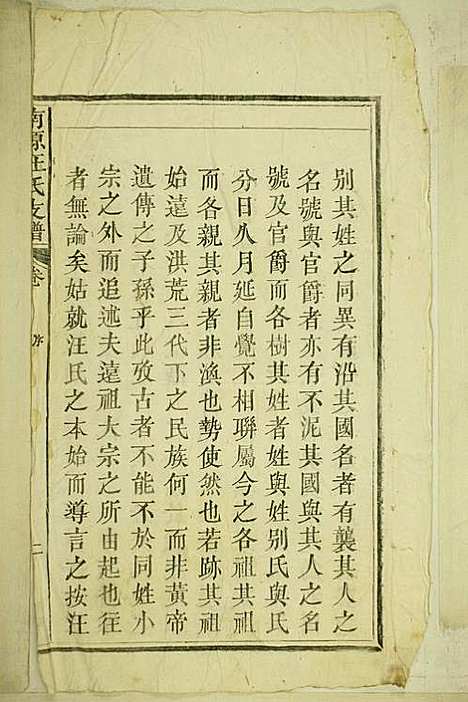 別其姓之同異有沿其國名者有襲其人之
名號與官爵者亦有不泥其國與其人之名
號及官爵而各樹其姓者姓與姓别氏與氏
分日久月延自覺不相聯屬今之各祖其祖
而各親其親者非渙也勢使然也若跡其祖
始遠及洪荒三代下之民族何一而非黃帝
遺傳之子孫乎此攷古者不能不於同姓小
宗之外而追述夫遠祖大宗之所由起也徃
者無論矣姑就汪氏之本始而導言之按汪
南源汪氏支譜 卷 序 二